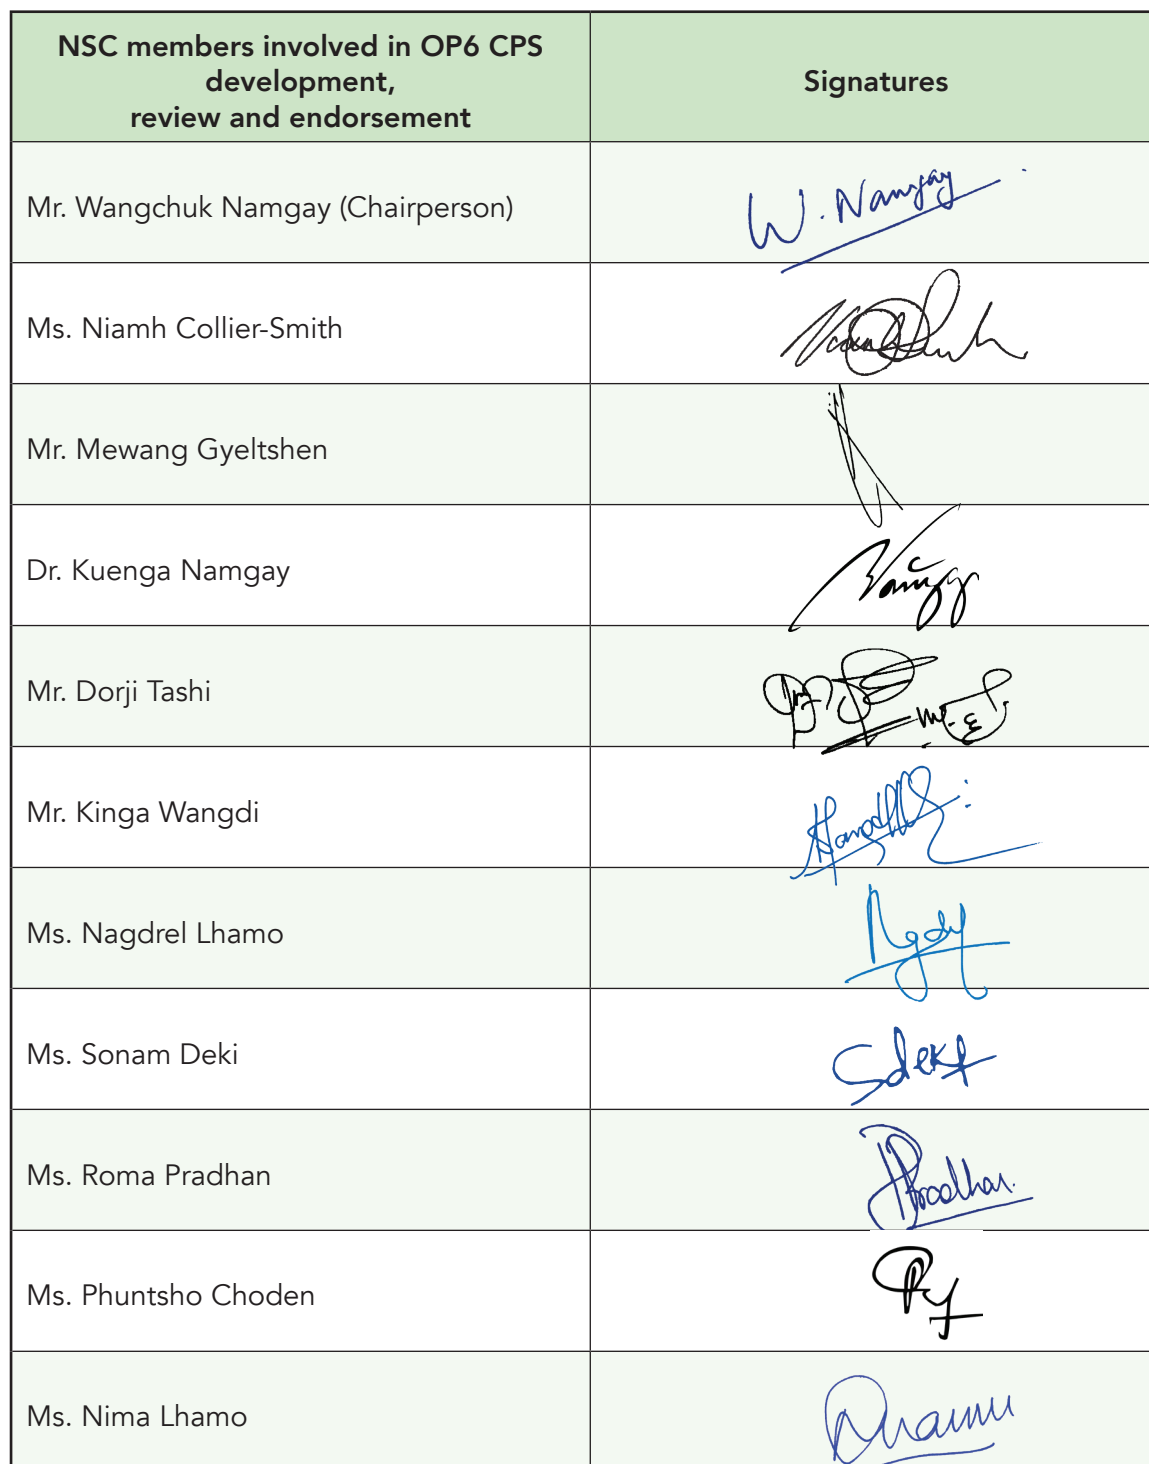 NSC members involved in OP6 CPS
development,
review and endorsement
Signatures
Mr. Wangchuk Namgay (Chairperson)
W. Namgay
Ms. Niamh Collier-Smith
Mr. Mewang Gyeltshen
Dr. Kuenga Namgay
Mr. Dorji Tashi
Mr. Kinga Wangdi
Ms. Nagdrel Lhamo
Ms. Sonam Deki
Sdeki
Ms. Roma Pradhan
Pradhan.
Ms. Phuntsho Choden
Ms. Nima Lhamo